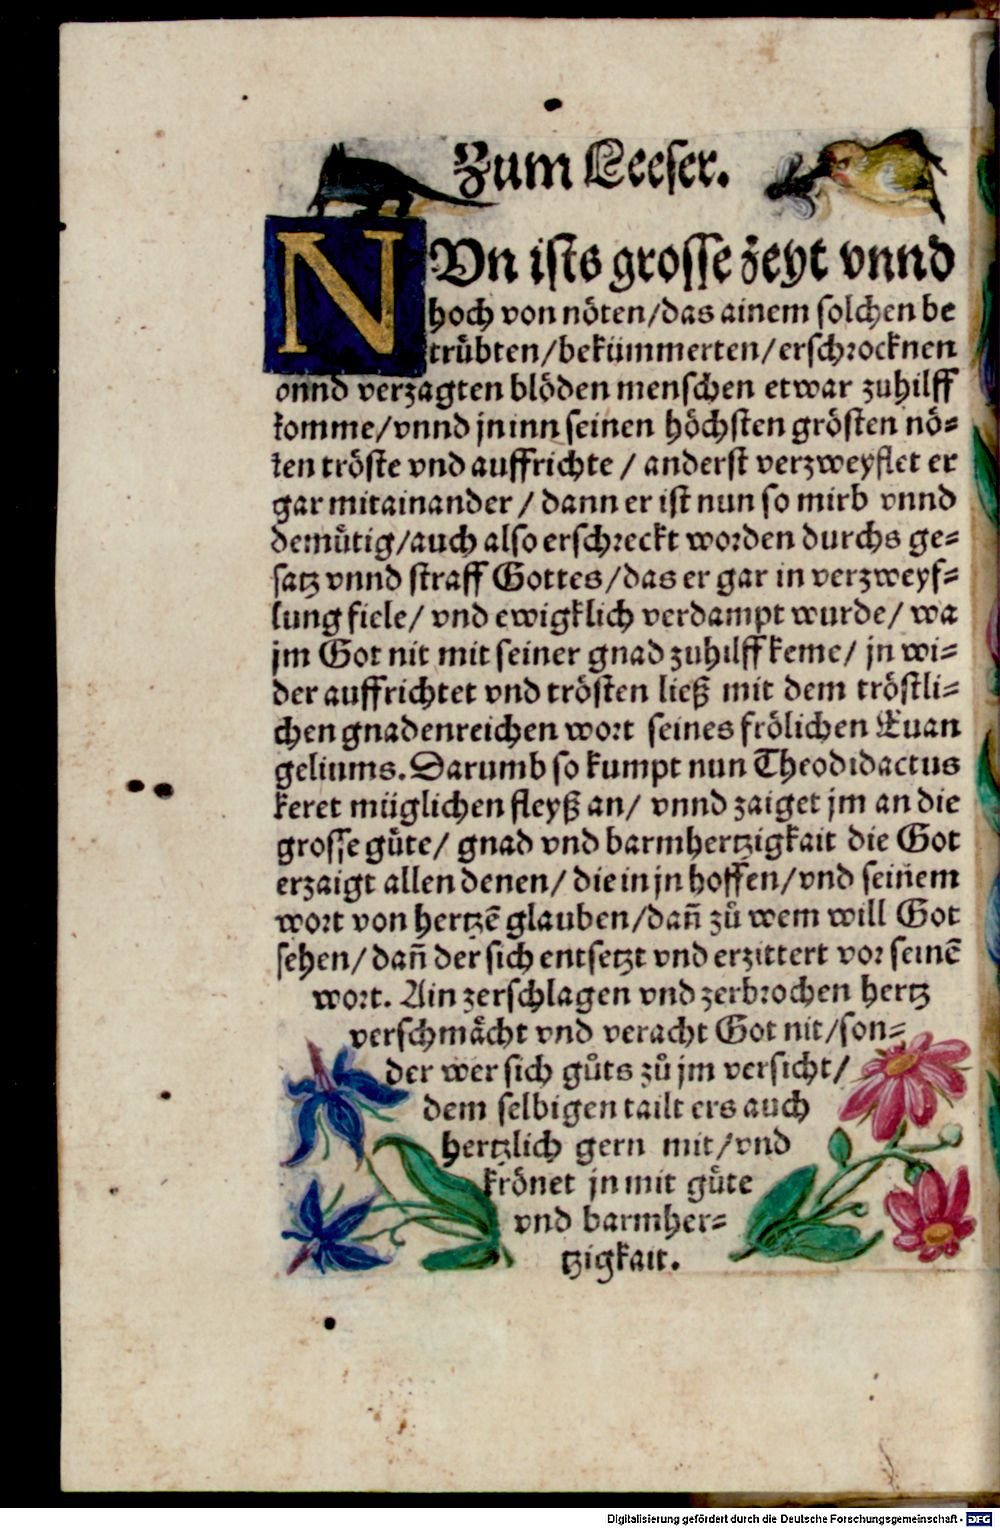 Zum Leeser.
NVn ists grosse zeyt vnnd
hoch von nöten/das ainem solchen be
trübten/bekümmerten/erschrocknen
vnnd verzagten blöden menschen etwar zuhilff
komme/vnnd jn inn seinen höchsten grösten nö-
ten tröste vnd auffrichte / anderst verzweyflet er
gar mitainander / dann er ist nun so mirb vnnd
demütig/auch also erschreckt worden durchs ge-
satz vnnd straff Gottes/das er gar in verzweyf-
lung fiele/ vnd ewigklich verdampt wurde/ wa
jm Got nit mit seiner gnad zuhilff keme/ jn wi-
der auffrichtet vnd trösten ließ mit dem tröstli-
chen gnadenreichen wort seines frölichen Euan
geliums. Darumb so kumpt nun Theodidactus
keret müglichen fleyß an/ vnnd zaiget jm an die
grosse güte/ gnad vnd barmhertzigkait die Got
erzaigt allen denen/ die in jn hoffen/vnd seinem
wort von hertzē glauben/dañ zů wem will Got
sehen/ dañ der sich entsetzt vnd erzittert vor seinē
wort. Ain zerschlagen vnd zerbrochen hertz
verschmächt vnd veracht Got nit/son-
der wer sich gůts zů jm versicht/
dem selbigen tailt ers auch
hertzlich gern mit/vnd
krönet jn mit güte
vnd barmher-
tzigkait.
Digitalisierung gefördert durch die Deutsche Forschungsgemeinschaft - DFG